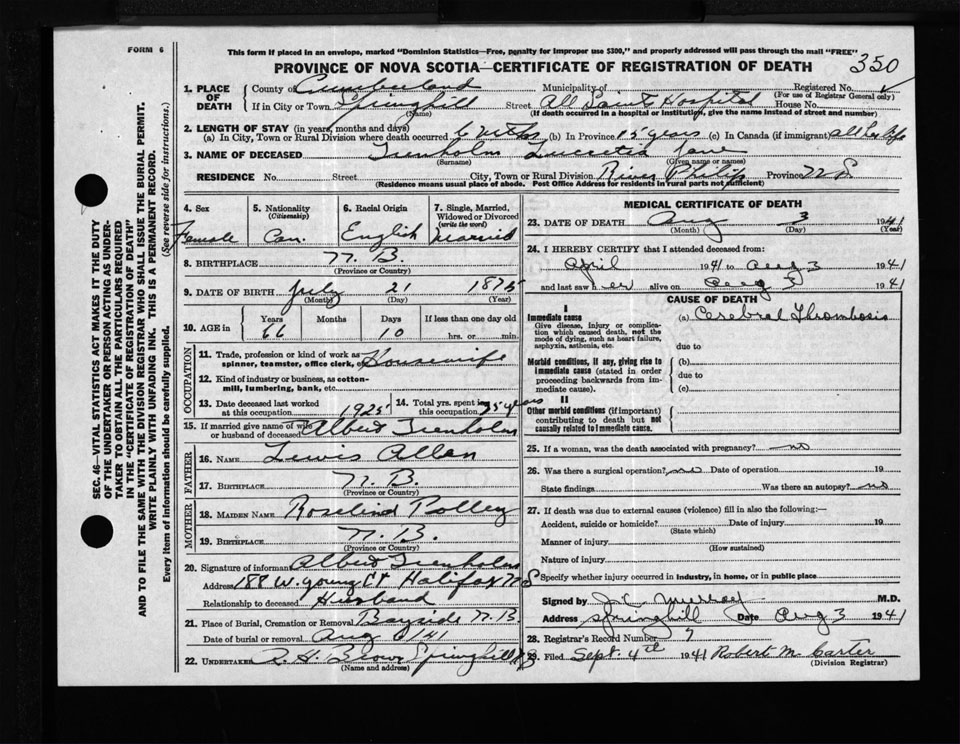 FORM 6
This form if placed in an envelope, marked "Dominion Statistics—Free, penalty for improper use $300," and properly addressed will pass through the mail "FREE"
PROVINCE OF NOVA SCOTIA—CERTIFICATE OF REGISTRATION OF DEATH 350
1. PLACE OF DEATH County of Cumberland Municipality of Registered No.
(For use of Registrar General only)
If in City or Town Springhill Street All Saints Hospital House No.
(Name) (If death occurred in a hospital or institution, give the name instead of street and number)
2. LENGTH OF STAY (in years, months and days)
(a) In City, Town or Rural Division where death occurred 6 (b) In Province 15 years (c) In Canada (if immigrant) all her life
3. NAME OF DECEASED Trenholm Lucretia Jane
(Surname) (Given name or names)
RESIDENCE No. Street City, Town or Rural Division River Philip Province N S
(Residence means usual place of abode. Post Office Address for residents in rural parts not sufficient)
4. Sex 5. Nationality 6. Racial Origin 7. Single, Married, Widowed or Divorced
(Citizenship) (write the word)
Female Can. English Married
8. BIRTHPLACE N. B.
(Province or Country)
9. DATE OF BIRTH July 21 1875
(Month) (Day) (Year)
10. AGE in Years Months Days If less than one day old
66 10 hrs. or min.
OCCUPATION
11. Trade, profession or kind of work as spinner, teamster, office clerk, etc. Housewife
12. Kind of industry or business, as cotton-mill, lumbering, bank, etc.
13. Date deceased last worked at this occupation 1925 14. Total yrs. spent in this occupation 25 years
15. If married give name of wife or husband of deceased Albert Trenholm
FATHER
16. NAME Lewis Allen
17. BIRTHPLACE N. B.
(Province or Country)
MOTHER
18. MAIDEN NAME Roselind Polley
19. BIRTHPLACE N. B.
(Province or Country)
20. Signature of informant Albert Trenholm
Address 188 W. Young St Halifax N S
Relationship to deceased Husband
21. Place of Burial, Cremation or Removal Bayside N. B.
Date of burial or removal Aug 6/41
22. UNDERTAKER R. H. Brown Springhill N S
(Name and address)
MEDICAL CERTIFICATE OF DEATH
23. DATE OF DEATH Aug 3 1941
(Month) (Day) (Year)
24. I HEREBY CERTIFY that I attended deceased from:
April 1941 to Aug 3 1941
and last saw her alive on Aug 3 1941
CAUSE OF DEATH
I
Immediate cause (a) Cerebral Thrombosis
Give disease, injury or complication which caused death, not the mode of dying, such as heart failure, asphyxia, asthenia, etc.
due to
Morbid conditions, if any, giving rise to immediate cause (stated in order proceeding backwards from immediate cause).
(b)
due to
(c)
II
Other morbid conditions (if important) contributing to death but not causally related to immediate cause.
25. If a woman, was the death associated with pregnancy? no
26. Was there a surgical operation? no Date of operation 19
State findings Was there an autopsy? no
27. If death was due to external causes (violence) fill in also the following:—
Accident, suicide or homicide? Date of injury 19
(State which)
Manner of injury
(How sustained)
Nature of injury
Specify whether injury occurred in industry, in home, or in public place
Signed by J. C. Murray M.D.
Address Springhill Date Aug 3 1941
28. Registrar's Record Number 7
29. Filed Sept. 4th 1941 Robert M. Carter
(Division Registrar)
SEC. 46—VITAL STATISTICS ACT MAKES IT THE DUTY
OF THE UNDERTAKER OR PERSON ACTING AS UNDER-
TAKER TO OBTAIN ALL THE PARTICULARS REQUIRED
IN THE "CERTIFICATE OF REGISTRATION OF DEATH"
AND TO FILE THE SAME WITH THE DIVISION REGISTRAR WHO SHALL ISSUE THE BURIAL PERMIT.
WRITE PLAINLY WITH UNFADING INK. THIS IS A PERMANENT RECORD.
Every item of information should be carefully supplied. (See reverse side for instructions.)